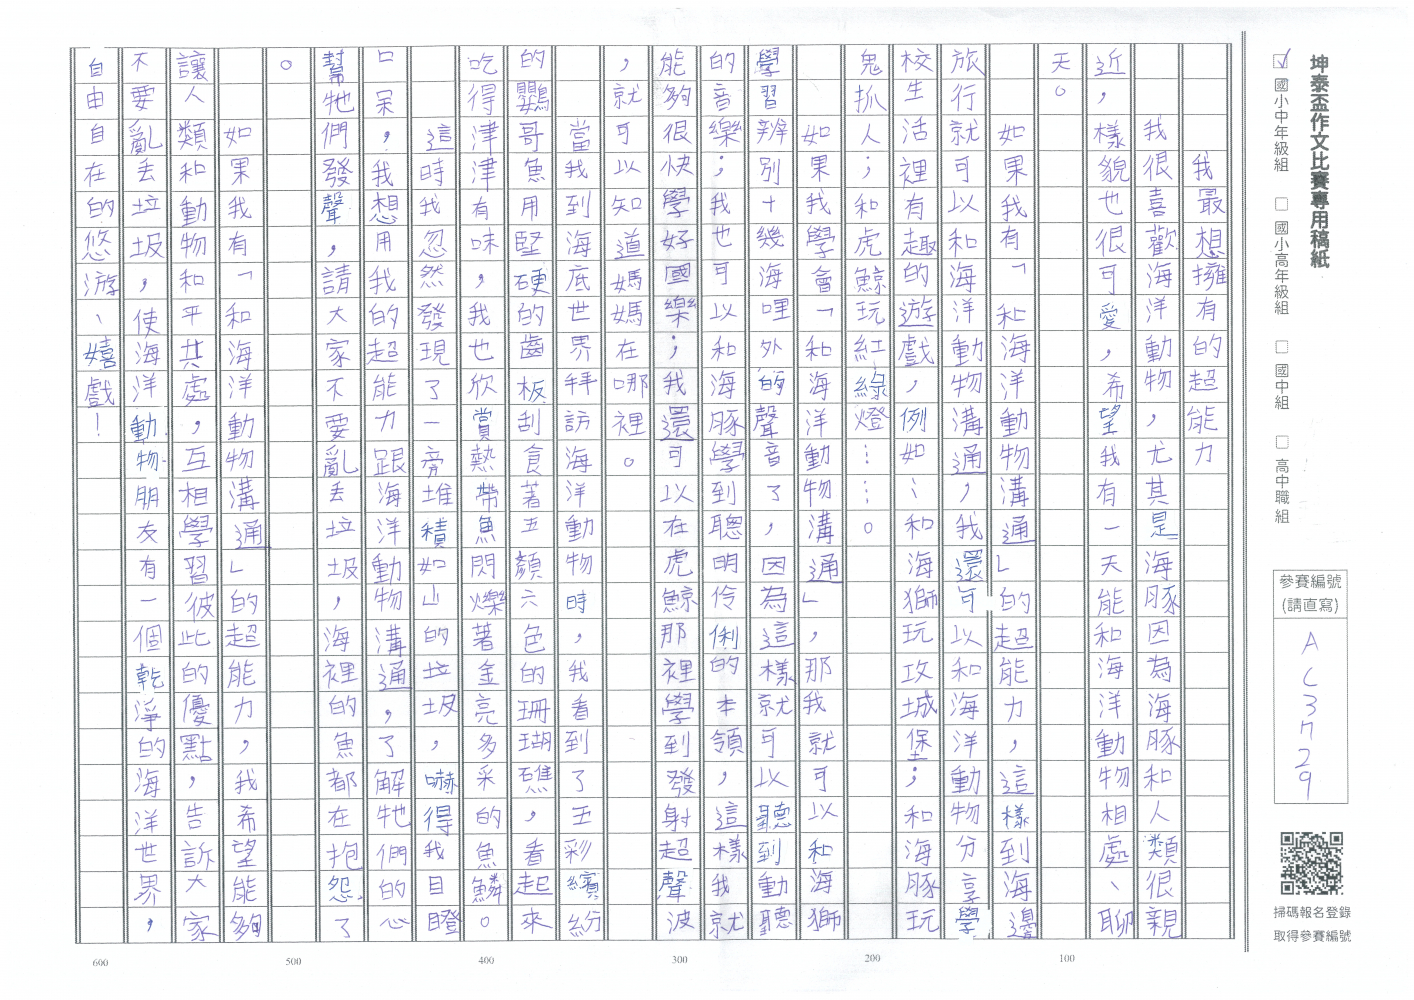 坤泰盃作文比賽專用稿紙
☑國小中年級組 □國小高年級組 □國中組 □高中職組
參賽編號
(請直寫)
AC3729
掃碼報名登錄
取得參賽編號
我最想擁有的超能力
我很喜歡海洋動物，尤其是海豚因為海豚和人類很親
近，樣貌也很可愛，希望我有一天能和海洋動物相處、聊
天。
如果我有「和海洋動物溝通」的超能力，這樣到海邊
旅行就可以和海洋動物溝通，我還可以和海洋動物分享學
校生活裡有趣的遊戲，例如：和海獅玩攻城堡；和海豚玩
鬼抓人；和虎鯨玩紅綠燈……。
如果我學會「和海洋動物溝通」，那我就可以和海獅
學習辨別十幾海哩外的聲音了，因為這樣就可以聽到動聽
的音樂；我也可以和海豚學到聰明伶俐的本領，這樣我就
能夠很快學好國樂；我還可以在虎鯨那裡學到發射超聲波
，就可以知道媽媽在哪裡。
當我到海底世界拜訪海洋動物時，我看到了五彩繽紛
的鸚哥魚用堅硬的齒板刮食著五顏六色的珊瑚礁，看起來
吃得津津有味，我也欣賞熱帶魚閃爍著金亮多采的魚鱗。
這時我忽然發現了一旁堆積如山的垃圾，嚇得我目瞪
口呆，我想用我的超能力跟海洋動物溝通，了解牠們的心
聲，幫牠們發聲，請大家不要亂丟垃圾，海裡的魚都在抱怨了
。
如果我有「和海洋動物溝通」的超能力，我希望能夠
讓人類和動物和平共處，互相學習彼此的優點，告訴大家
不要亂丟垃圾，使海洋動物朋友有一個乾淨的海洋世界，
自由自在的悠游、嬉戲！
100
200
300
400
500
600